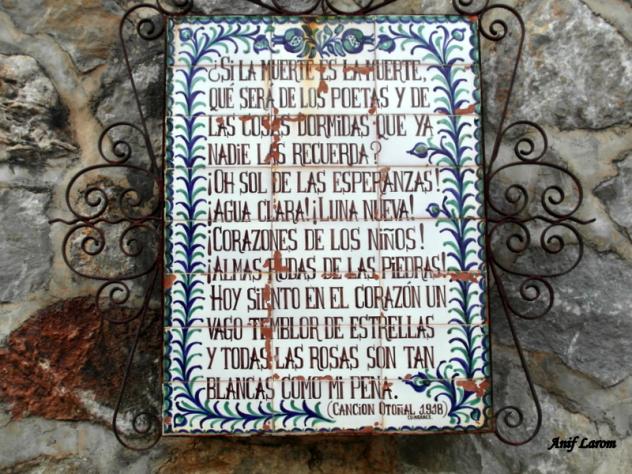 ¿SI LA MUERTE ES LA MUERTE,
QUÉ SERA DE LOS POETAS Y DE
LAS COSAS DORMIDAS QUE YA
NADIE LAS RECUERDA?
¡OH SOL DE LAS ESPERANZAS!
¡AGUA CLARA! ¡LUNA NUEVA!
¡CORAZONES DE LOS NIÑOS!
¡ALMAS RUDAS DE LAS PIEDRAS!
HOY SIENTO EN EL CORAZÓN UN
VAGO TEMBLOR DE ESTRELLAS
Y TODAS LAS ROSAS SON TAN
BLANCAS COMO MI PENA.
(CANCION OTOÑAL 1918)
Anif Larom